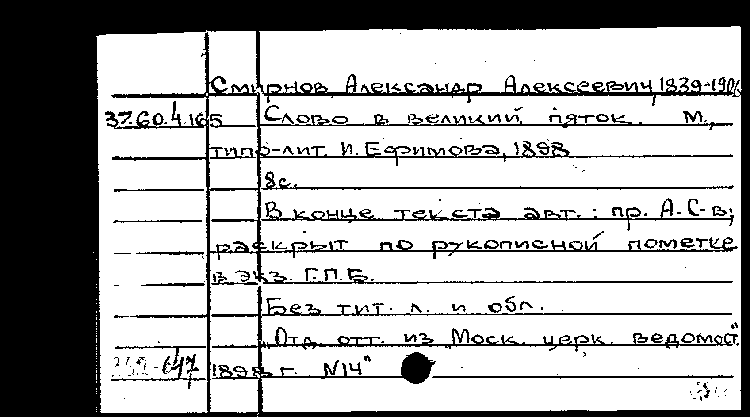 Смирнов, Александр Алексеевич, 1839-1906
37.60.4.165 Слово в великий пяток. М.,
типо-лит. И. Ефимова, 1898
8с.
В конце текста авт.: пр. А. С-в;
раскрыт по рукописной пометке
в экз. Г.П.Б.
Без тит. л. и обл.
"Отд. отт. из "Моск. церк. ведомост."
1898 г. №14"